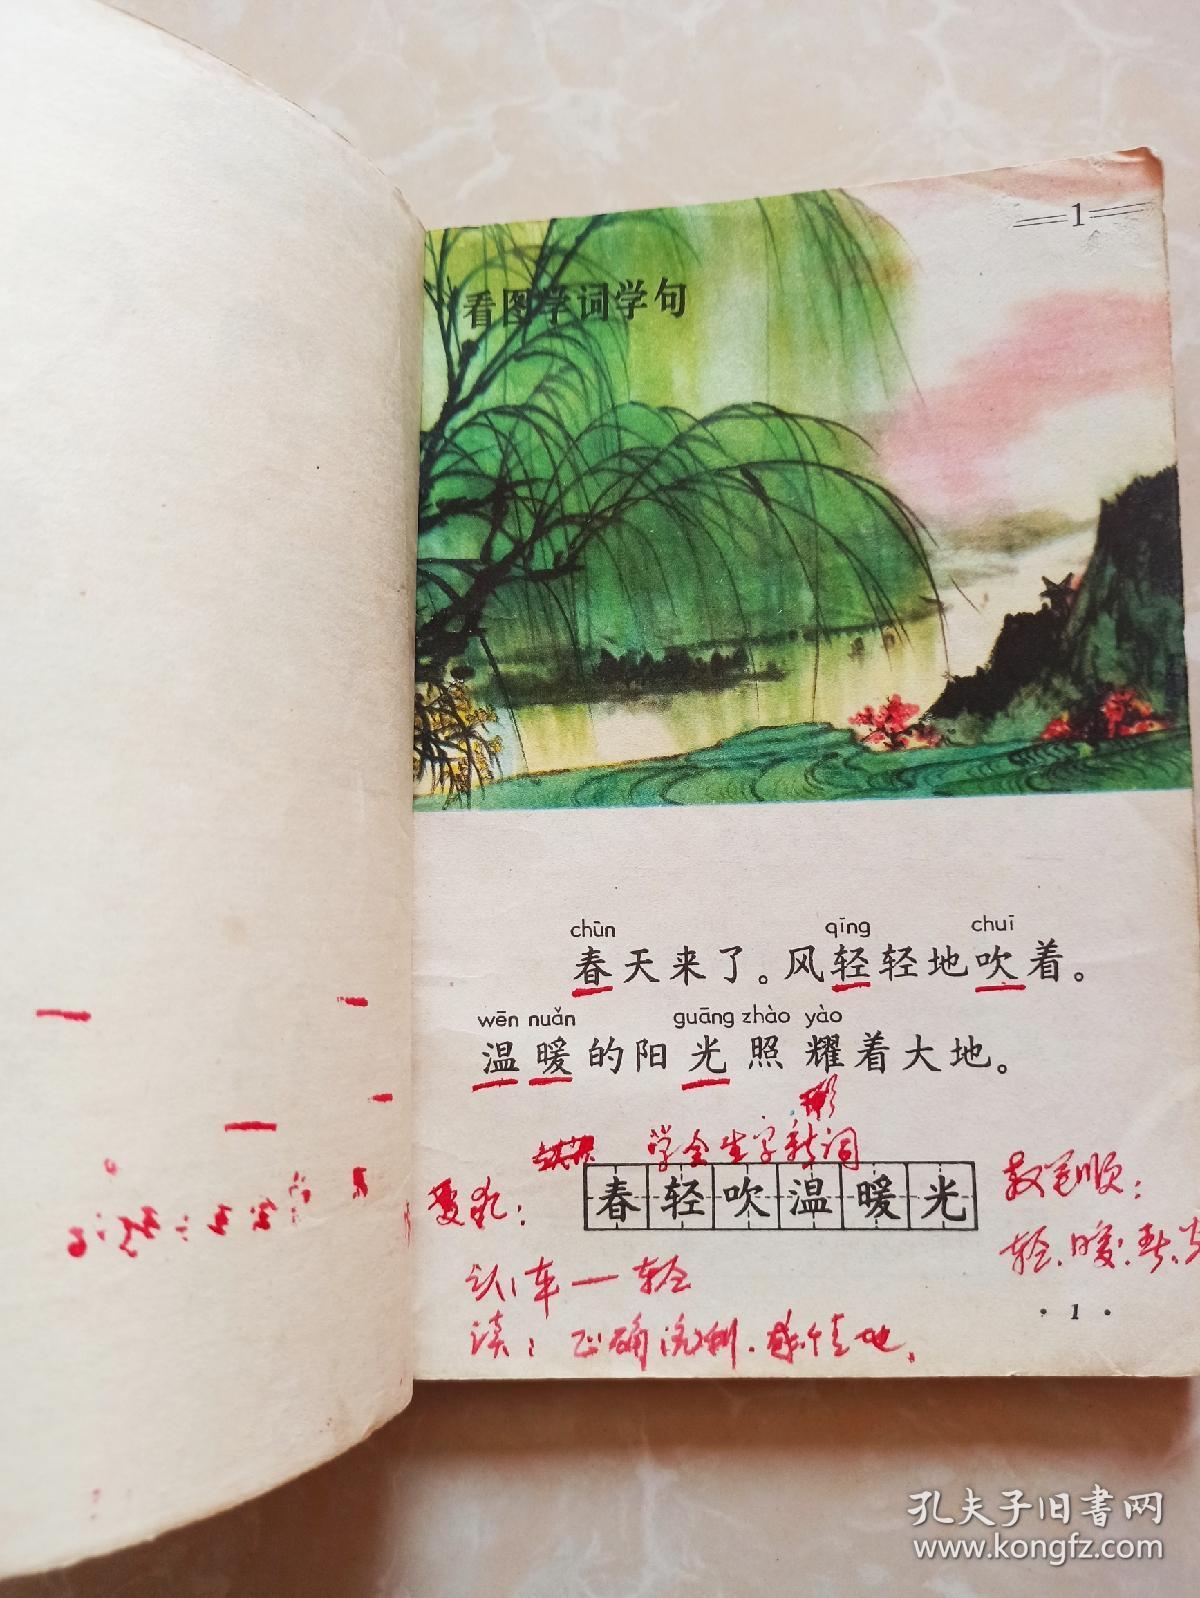 1
看图学词学句
chūn qīng chuī
春天来了。风轻轻地吹着。
wēn nuǎn guāng zhào yào
温暖的阳光照耀着大地。
学会生字新词
春轻吹温暖光
要求：
教笔顺：
轻、暖、春、光
认：车—轻
读：正确流利．有感情地
·1·
孔夫子旧书网
www.kongfz.com